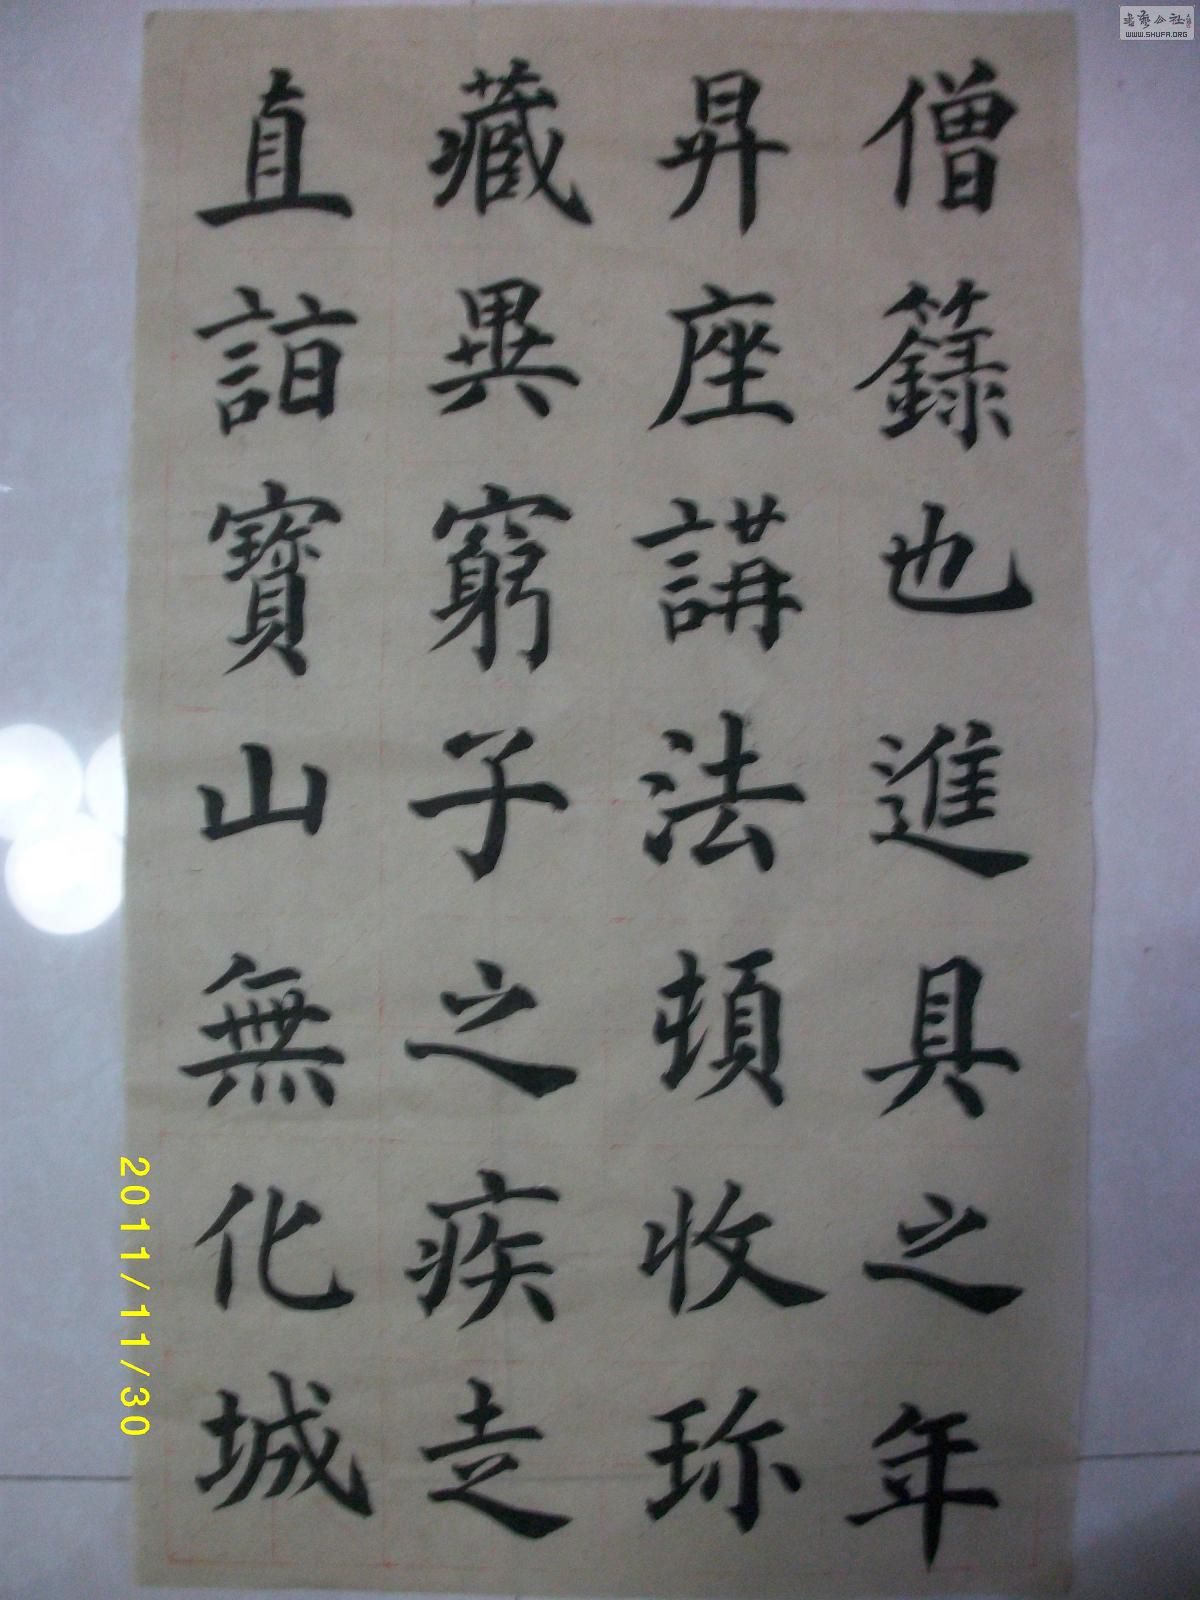 僧籙也進具之年
昇座講法頓收珎
藏異窮子之疾走
直詣寶山無化城
2011/11/30
书艺公社
WWW.SHUFA.ORG